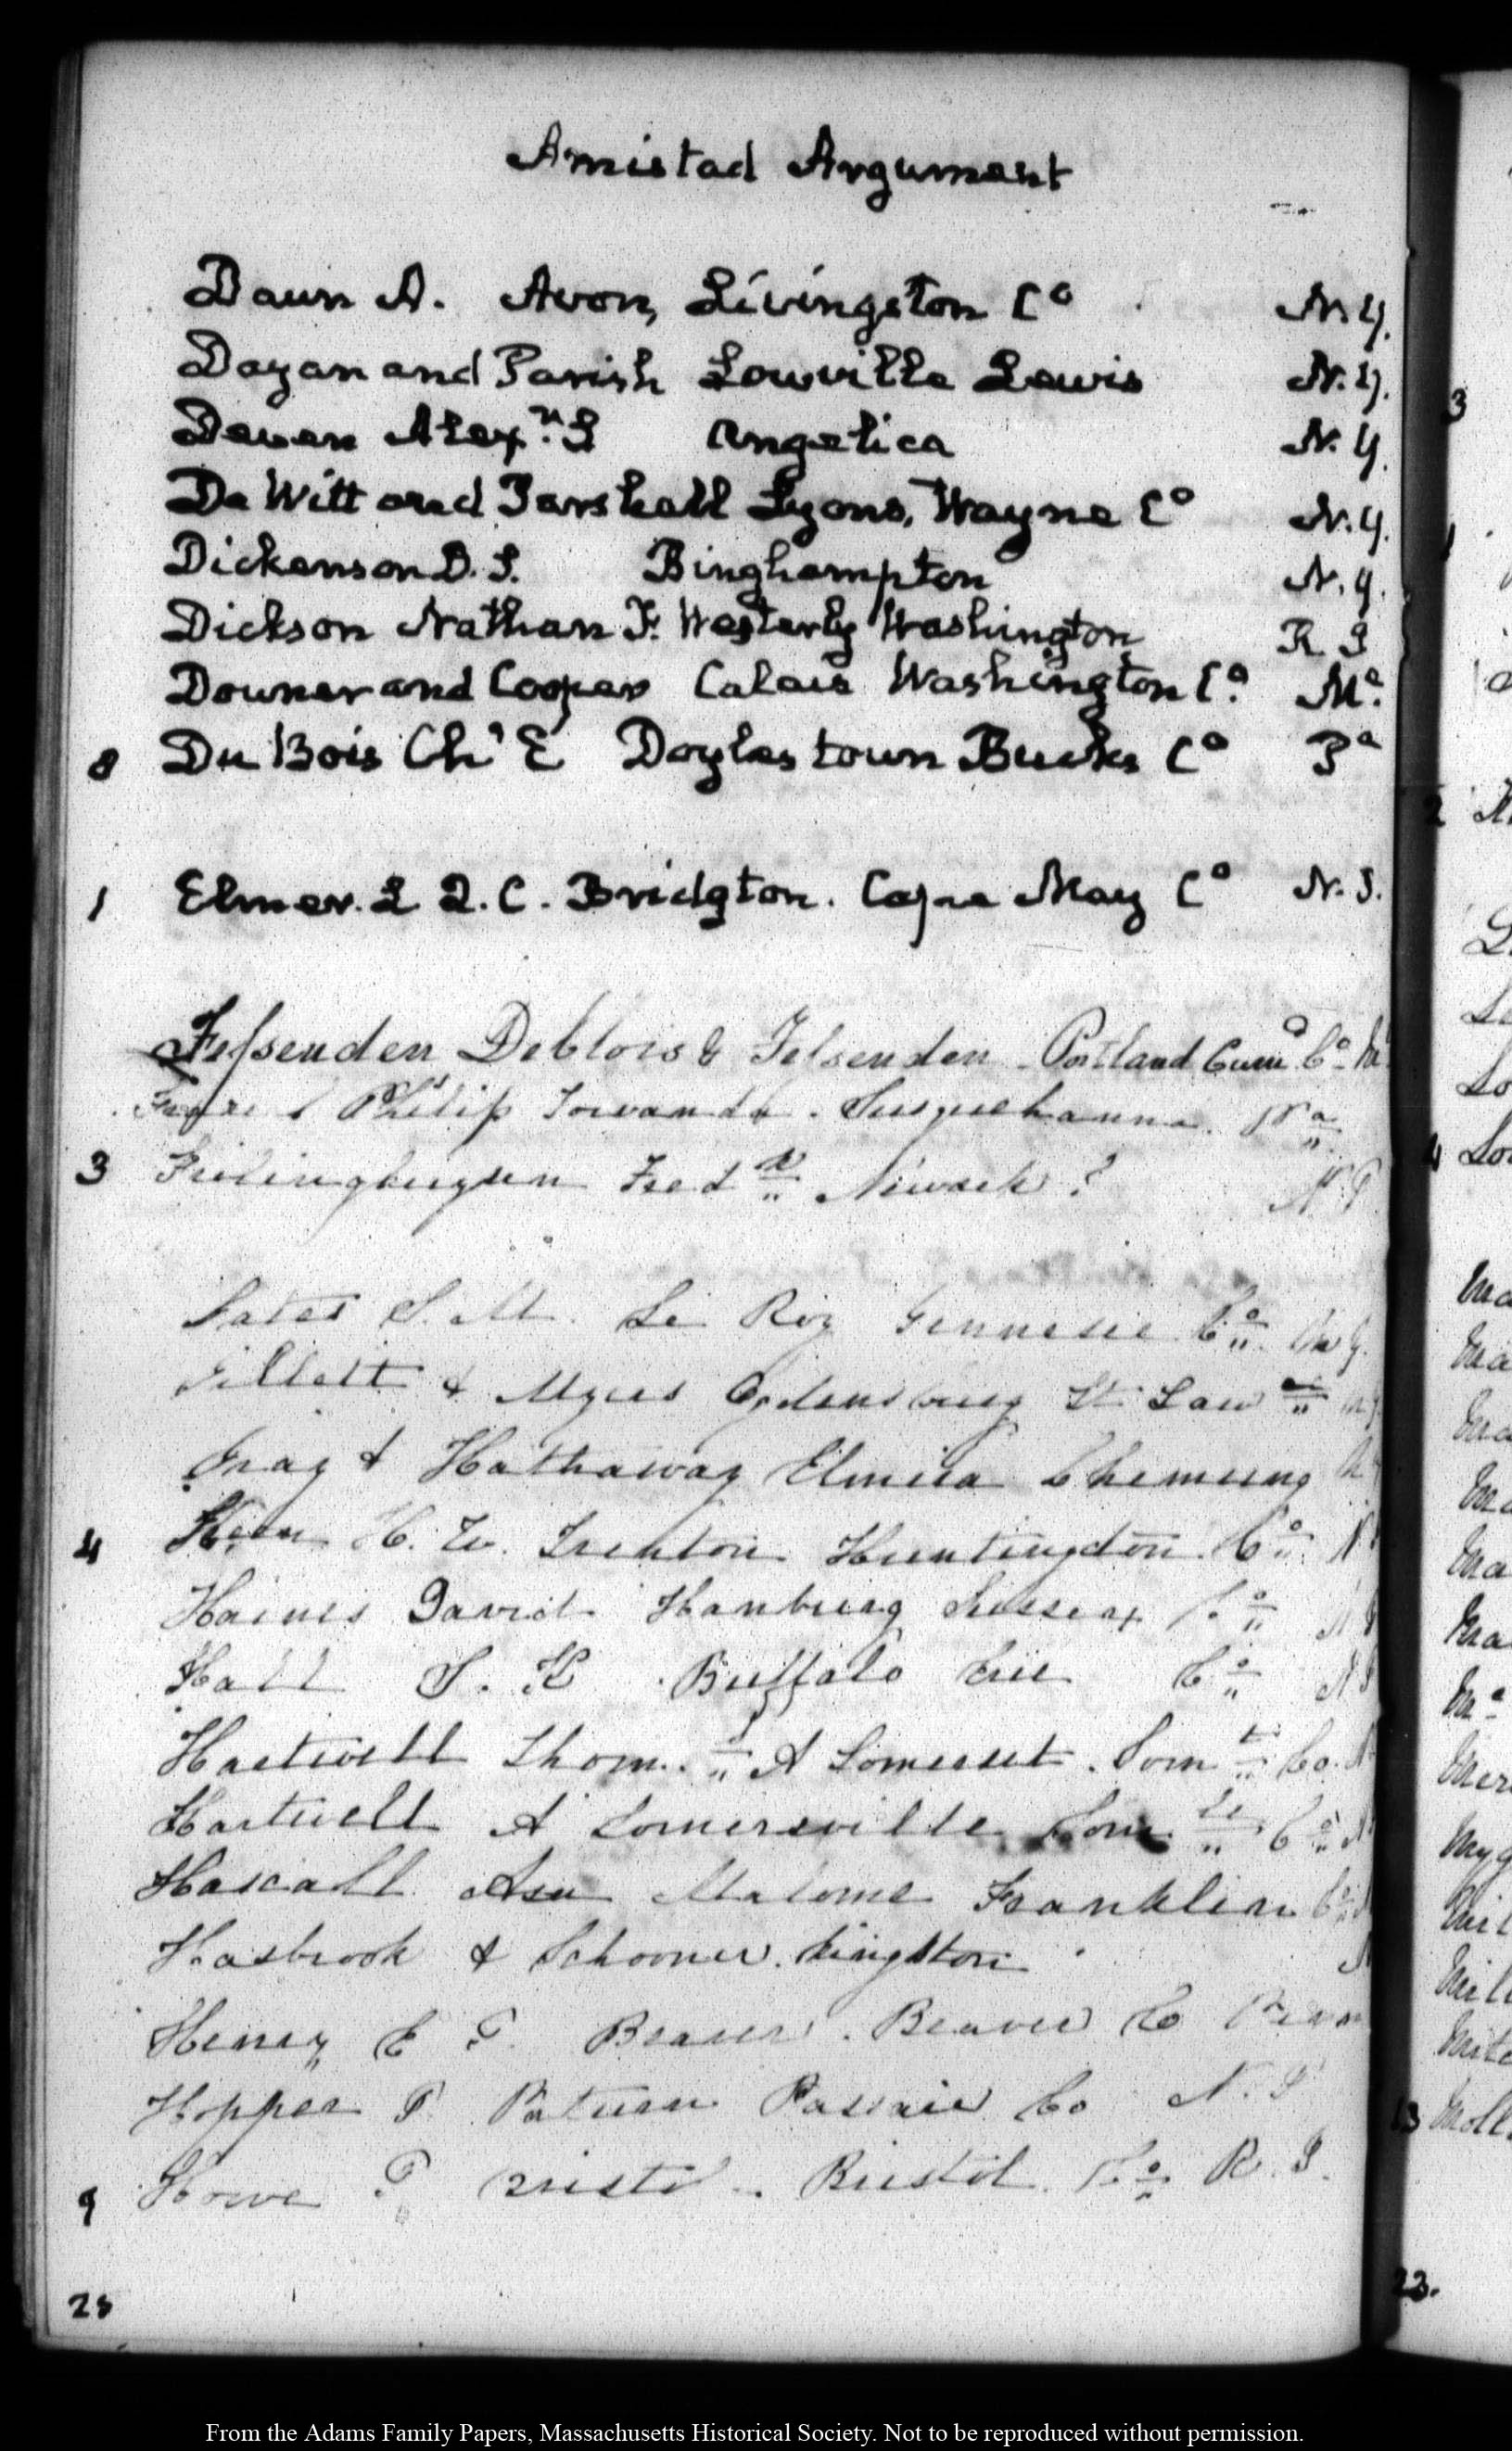 Amistad Argument
Daun A. Avon, Livingston Co N.Y.
Dayan and Parish Lowville Lewis N.Y.
Deven Alexr. S Angelica N.Y.
De Witt and Parshall Lyons, Wayne Co N.Y.
Dickenson D. S. Binghampton N.Y.
Dickson Nathan F. Westerly Washington R I
Downer and Cooper Calais Washington Co. Me.
8 Du Bois Chs E Doylestown Bucks Co Pa
1 Elmer. L Q. C. Bridgton. Cape May Co N. J.
Fessenden Deblois & Fessenden Portland Cumd Co
Philip Towanda. Susquehanna. Pa
3 Fredk Newark ? N J
Gates S. M. Le Roy Gennesee Co N Y.
Gillett & Myers Ogdensburg St Law
Gray & Hathaway Elmira Chemung
4 H. W. Trenton Huntingdon. Co N
Haines David Hamburg Sussex Co N J
Hall S. K Buffalo Erie Co N Y
Hartwell Thoms A Somerset. Somt Co. N
Hartwell A Somerville Som Co
Hascall Asa Malone Franklin Co
Hasbrook & Schooner. Kingston
Henry T Beaver. Beaver Co Penn
Hopper P Paterson Passaic Co N. J
9 Howe Bristol. Bristol Co R. I.
25
3
4
13
23.
From the Adams Family Papers, Massachusetts Historical Society. Not to be reproduced without permission.